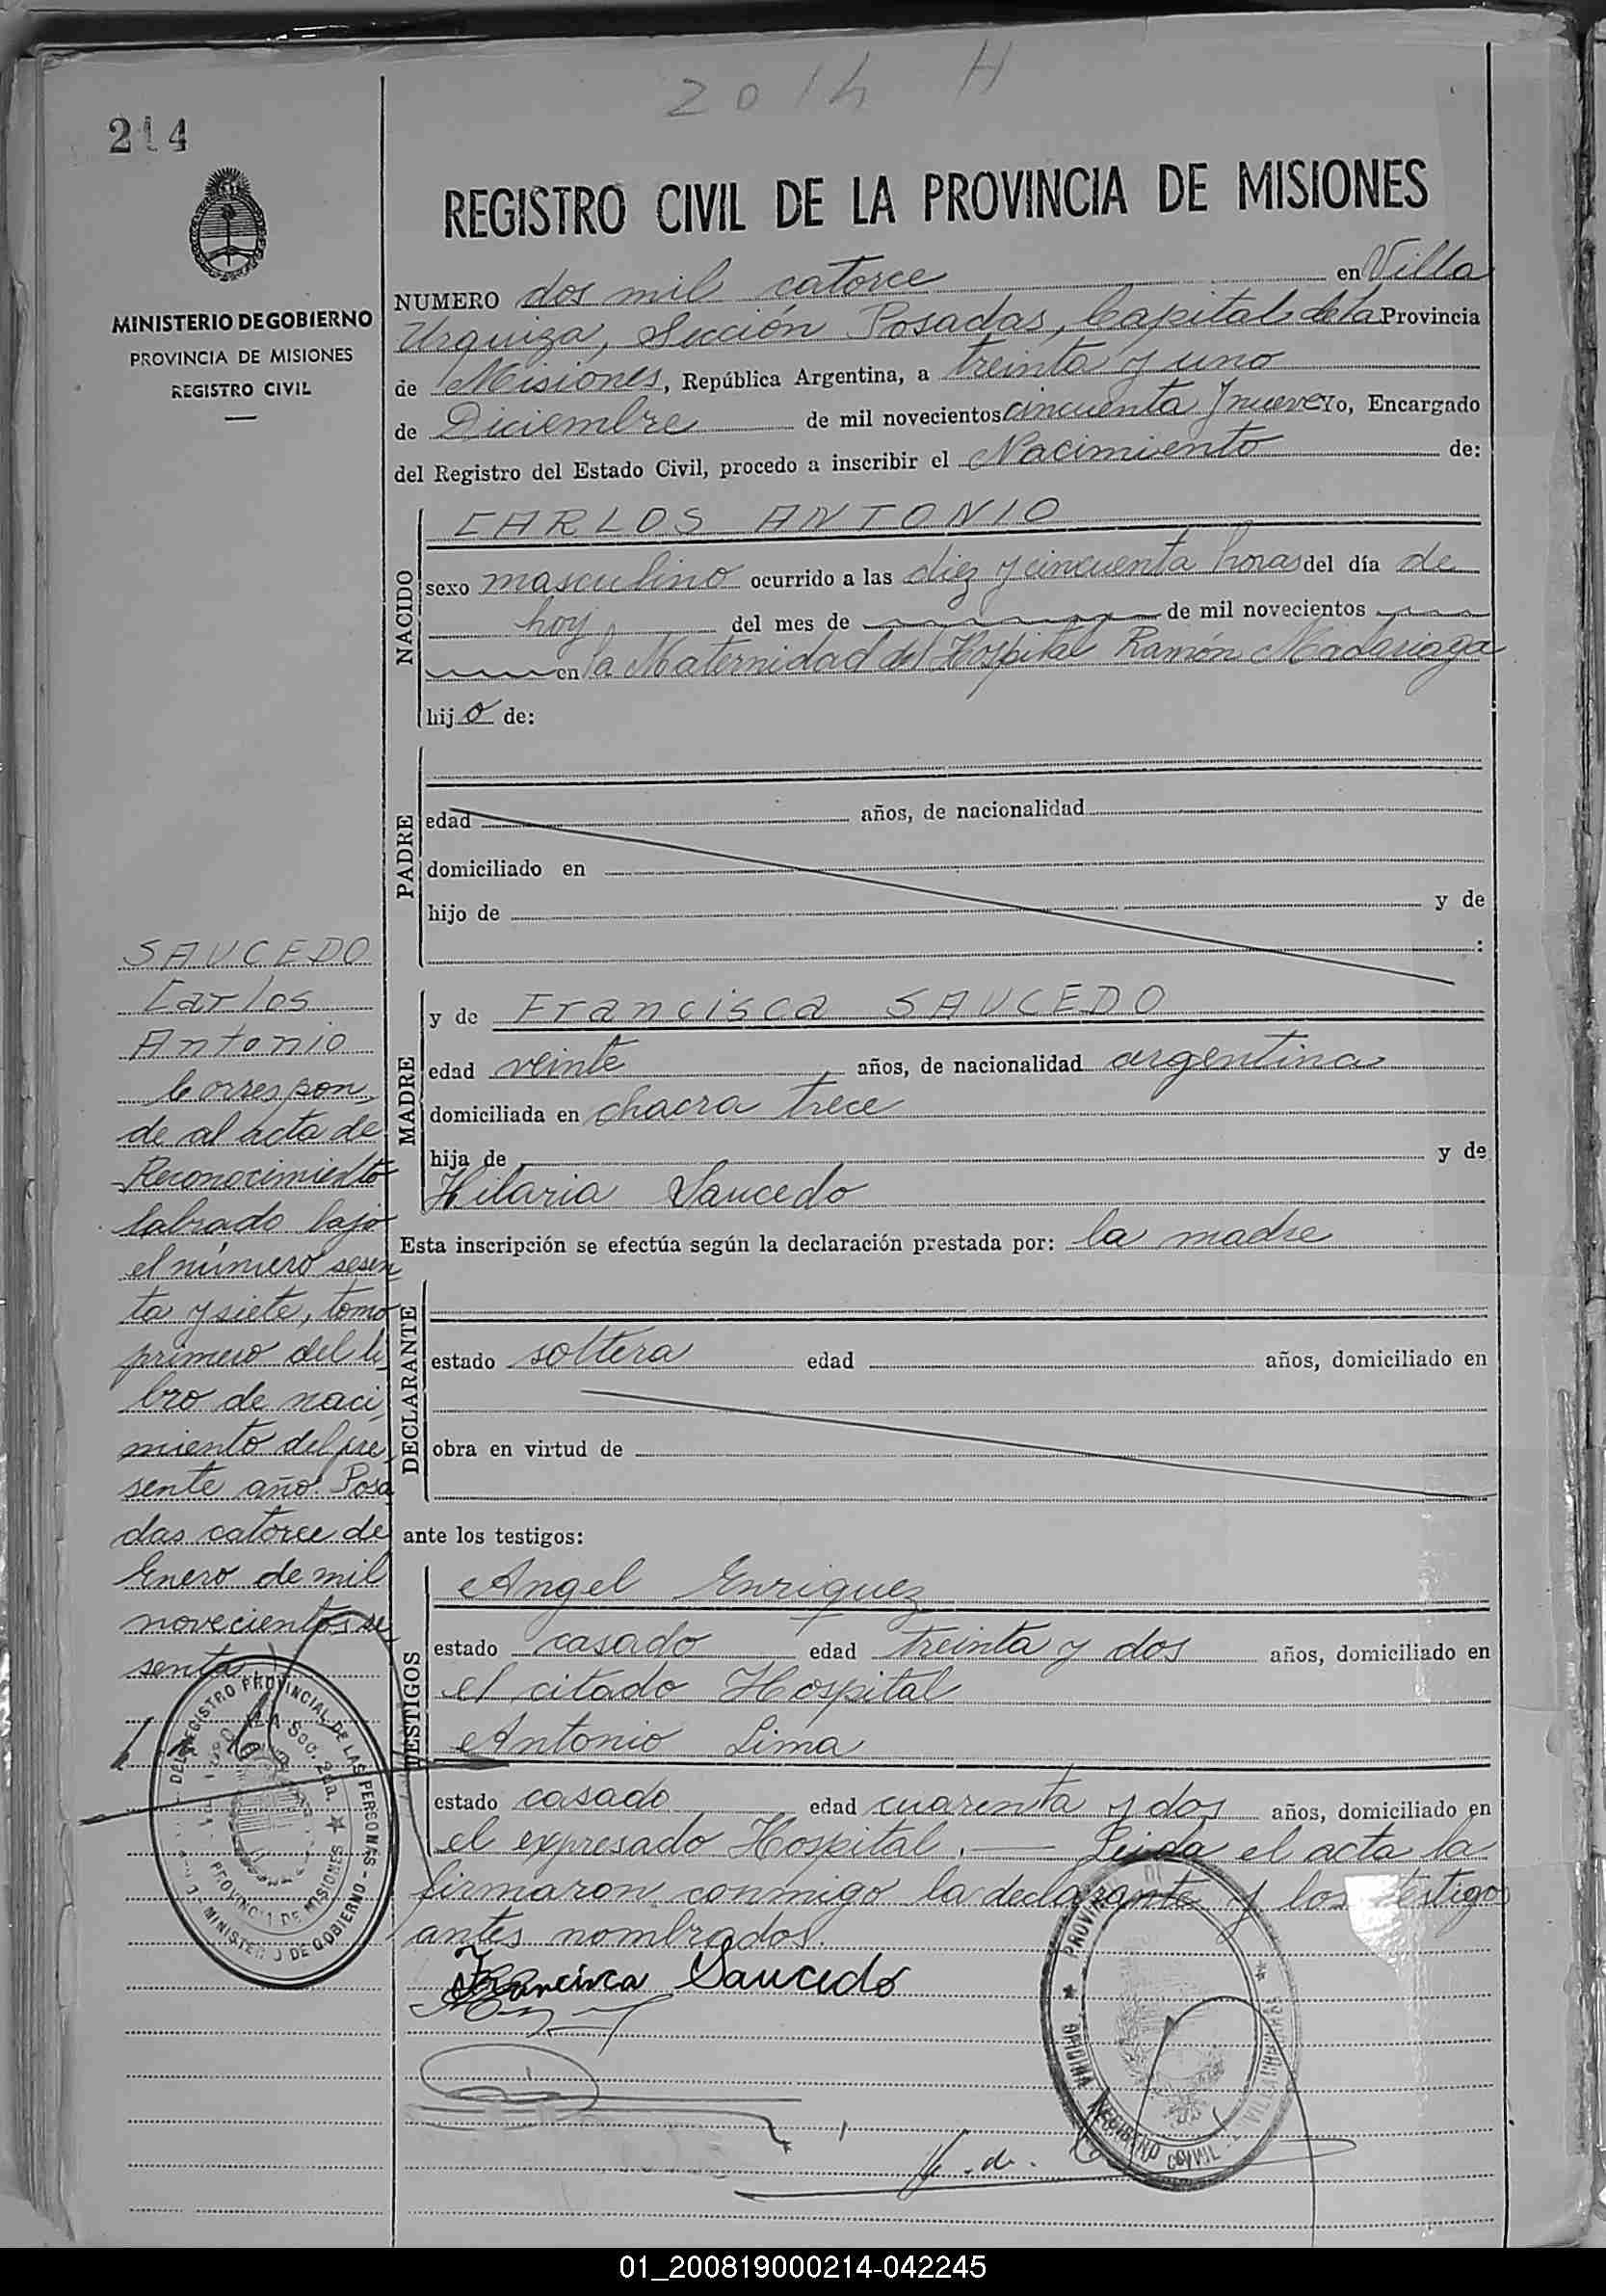 2014 H
214
REGISTRO CIVIL DE LA PROVINCIA DE MISIONES
MINISTERIO DE GOBIERNO
PROVINCIA DE MISIONES
REGISTRO CIVIL
NUMERO dos mil catorce en Villa
Urquiza, Sección Posadas, Capital de la Provincia
de Misiones, República Argentina, a treinta y uno
de Diciembre de mil novecientos cincuenta y nueve Yo, Encargado
del Registro del Estado Civil, procedo a inscribir el Nacimiento de:
NACIDO
CARLOS ANTONIO
sexo masculino ocurrido a las diez y cincuenta horas del día de
hoy del mes de de mil novecientos
en la Maternidad del Hospital Ramón Madariaga
hijo de:
PADRE
edad años, de nacionalidad
domiciliado en
hijo de y de
:
MADRE
y de Francisca SAUCEDO
edad veinte años, de nacionalidad argentina
domiciliada en chacra trece
hija de y de
Hilaria Saucedo
Esta inscripción se efectúa según la declaración prestada por: la madre
DECLARANTE
estado soltera edad años, domiciliado en
obra en virtud de
ante los testigos:
TESTIGOS
Angel Enriquez
estado casado edad treinta y dos años, domiciliado en
el citado Hospital
Antonio Lima
estado casado edad cuarenta y dos años, domiciliado en
el expresado Hospital. — Leida el acta la
firmaron conmigo la declarante y los testigos
antes nombrados.
Francisca Saucedo
SAUCEDO
Carlos
Antonio
Correspon
de al acta de
Reconocimiento
labrado bajo
el número sesen
ta y siete, tomo
primero del li
bro de naci
miento del pre
sente año. Posa
das catorce de
Enero de mil
novecientos se
senta
REGISTRO PROVINCIAL DE LAS PERSONAS
MINISTERIO DE GOBIERNO
PROVINCIA DE MISIONES
Soc. 2da.
OFICINA REGISTRO CIVIL
01_200819000214-042245